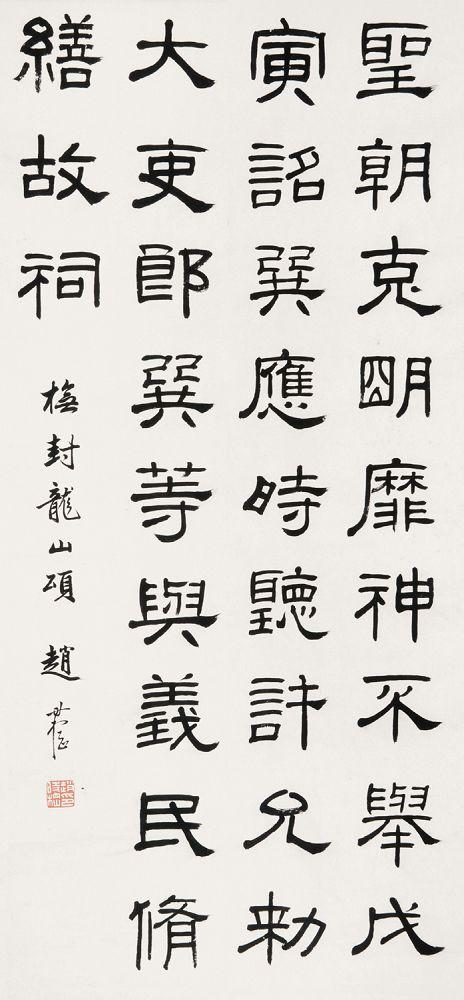 聖朝克明靡神不舉戊
寅詔巽應時聽許允勅
大吏郎巽等與義民脩
繕故祠
橅封龍山頌 趙